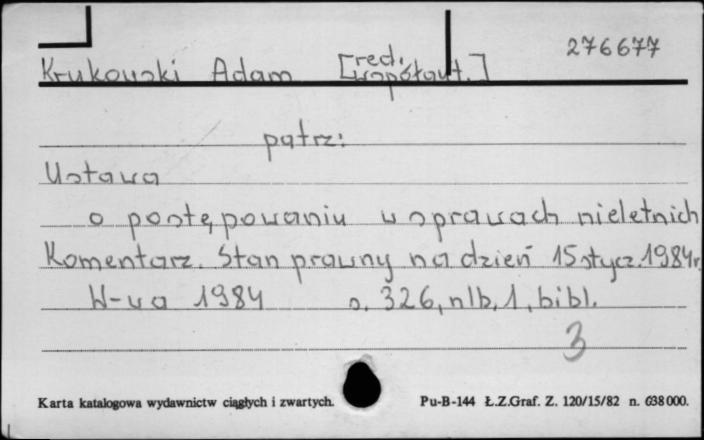 276677
Krukowski Adam [red. współaut.]
patrz:
Ustawa
o postępowaniu w sprawach nieletnich
Komentarz. Stan prawny na dzień 15 stycz. 1984 r.
W-wa 1984 s. 326, nlb. 1, bibl.
3
Karta katalogowa wydawnictw ciągłych i zwartych. Pu-B-144 Ł.Z.Graf. Z. 120/15/82 n. 638000.